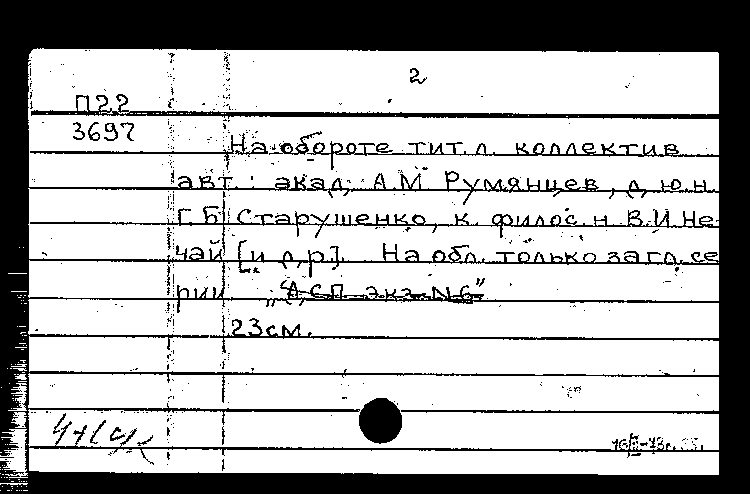 2
П22
3697
На обороте тит. л. коллектив
авт.: акад. А.М Румянцев, д. ю. н.
Г.Б Старушенко, к. филос. н. В.И. Не-
чай [и др.]. На обл. только загл. се
рии
23см.